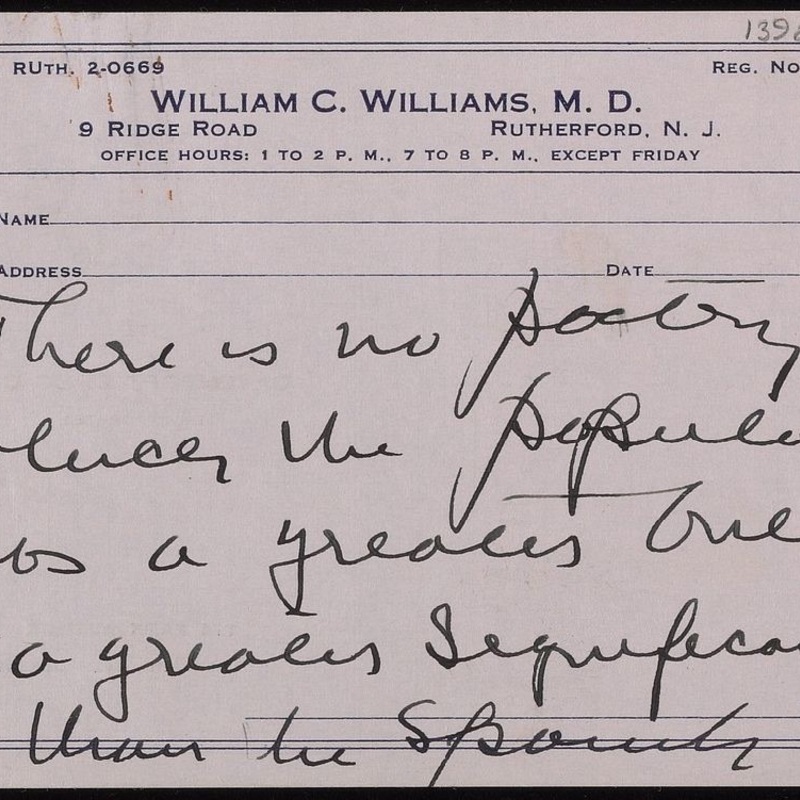 1398
RUTH. 2-0669 REG. NO
WILLIAM C. WILLIAMS, M. D.
9 RIDGE ROAD RUTHERFORD, N. J.
OFFICE HOURS: 1 TO 2 P. M., 7 TO 8 P. M., EXCEPT FRIDAY
NAME
ADDRESS DATE
There is no poetry
the popula
as a greater
a greater significa
than the Spanish